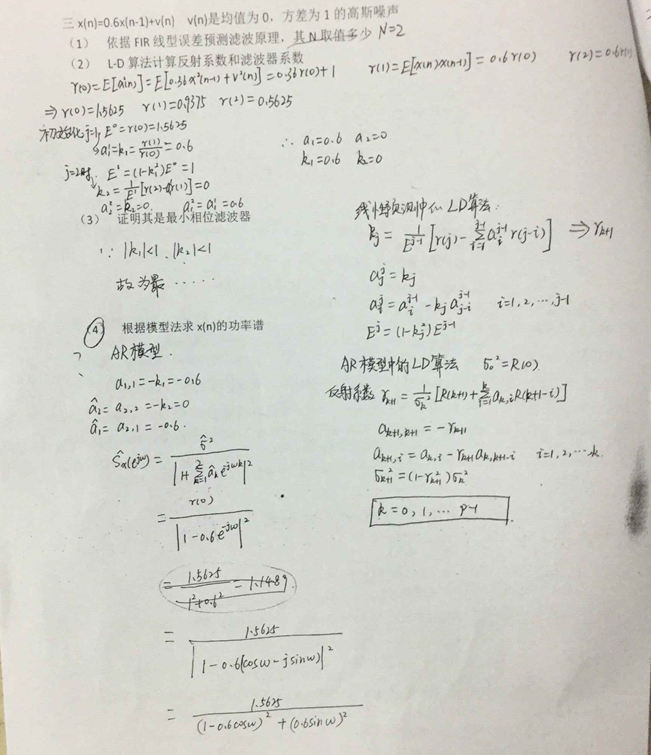 三 x(n)=0.6x(n-1)+v(n) v(n)是均值为0，方差为1的高斯噪声
（1） 依据FIR线型误差预测滤波原理，其N取值多少 N=2
（2） L-D算法计算反射系数和滤波器系数
r(0)=E[x²(n)]=E[0.36x²(n-1)+v²(n)]=0.36r(0)+1 r(1)=E[x(n)x(n-1)]=0.6r(0) r(2)=0.6r(1)
⇒ r(0)=1.5625 r(1)=0.9375 r(2)=0.5625
初始化j=1, E⁰=r(0)=1.5625
a₁¹=k₁=r(1)/r(0)=0.6
∴ a₁=0.6 a₂=0
k₁=0.6 k₂=0
j=2时, E¹=(1-k₁²)E⁰=1
k₂=1/E¹[r(2)-a₁¹r(1)]=0
a₂²=k₂=0. a₁²=a₁¹=0.6
（3） 证明其是最小相位滤波器
∵ |k₁|<1 . |k₂|<1
故为最……
线性预测中的LD算法:
kⱼ=1/Eʲ⁻¹[r(j)-Σᵢ₌₁ʲ⁻¹aᵢʲ⁻¹r(j-i)] ⇒ rₖ₊₁
aⱼʲ=kⱼ
aᵢʲ=aᵢʲ⁻¹-kⱼaⱼ₋ᵢʲ⁻¹ i=1,2,…,j-1
Eʲ=(1-kⱼ²)Eʲ⁻¹
（4） 根据模型法求x(n)的功率谱
AR模型.
a₁,₁=-k₁=-0.6
â₂=a₂,₂=-k₂=0
â₁=a₂,₁=-0.6.
Ŝₓ(eʲʷ)=σ̂²/|1+Σₖ₌₁²âₖe⁻ʲʷᵏ|²
=r(0)/|1-0.6e⁻ʲʷ|²
=1.5625/1²+0.6²=1.1489
=1.5625/|1-0.6(cosw-jsinw)|²
=1.5625/(1-0.6cosw)²+(0.6sinw)²
AR模型中的LD算法 σ₀²=R(0)
反射系数 rₖ₊₁=1/σₖ²[R(k+1)+Σᵢ₌₁ᵏaₖ,ᵢR(k+1-i)]
aₖ₊₁,ₖ₊₁=-rₖ₊₁
aₖ₊₁,ᵢ=aₖ,ᵢ-rₖ₊₁aₖ,ₖ₊₁₋ᵢ i=1,2,…k
σₖ₊₁²=(1-rₖ₊₁²)σₖ²
k=0,1,…p-1